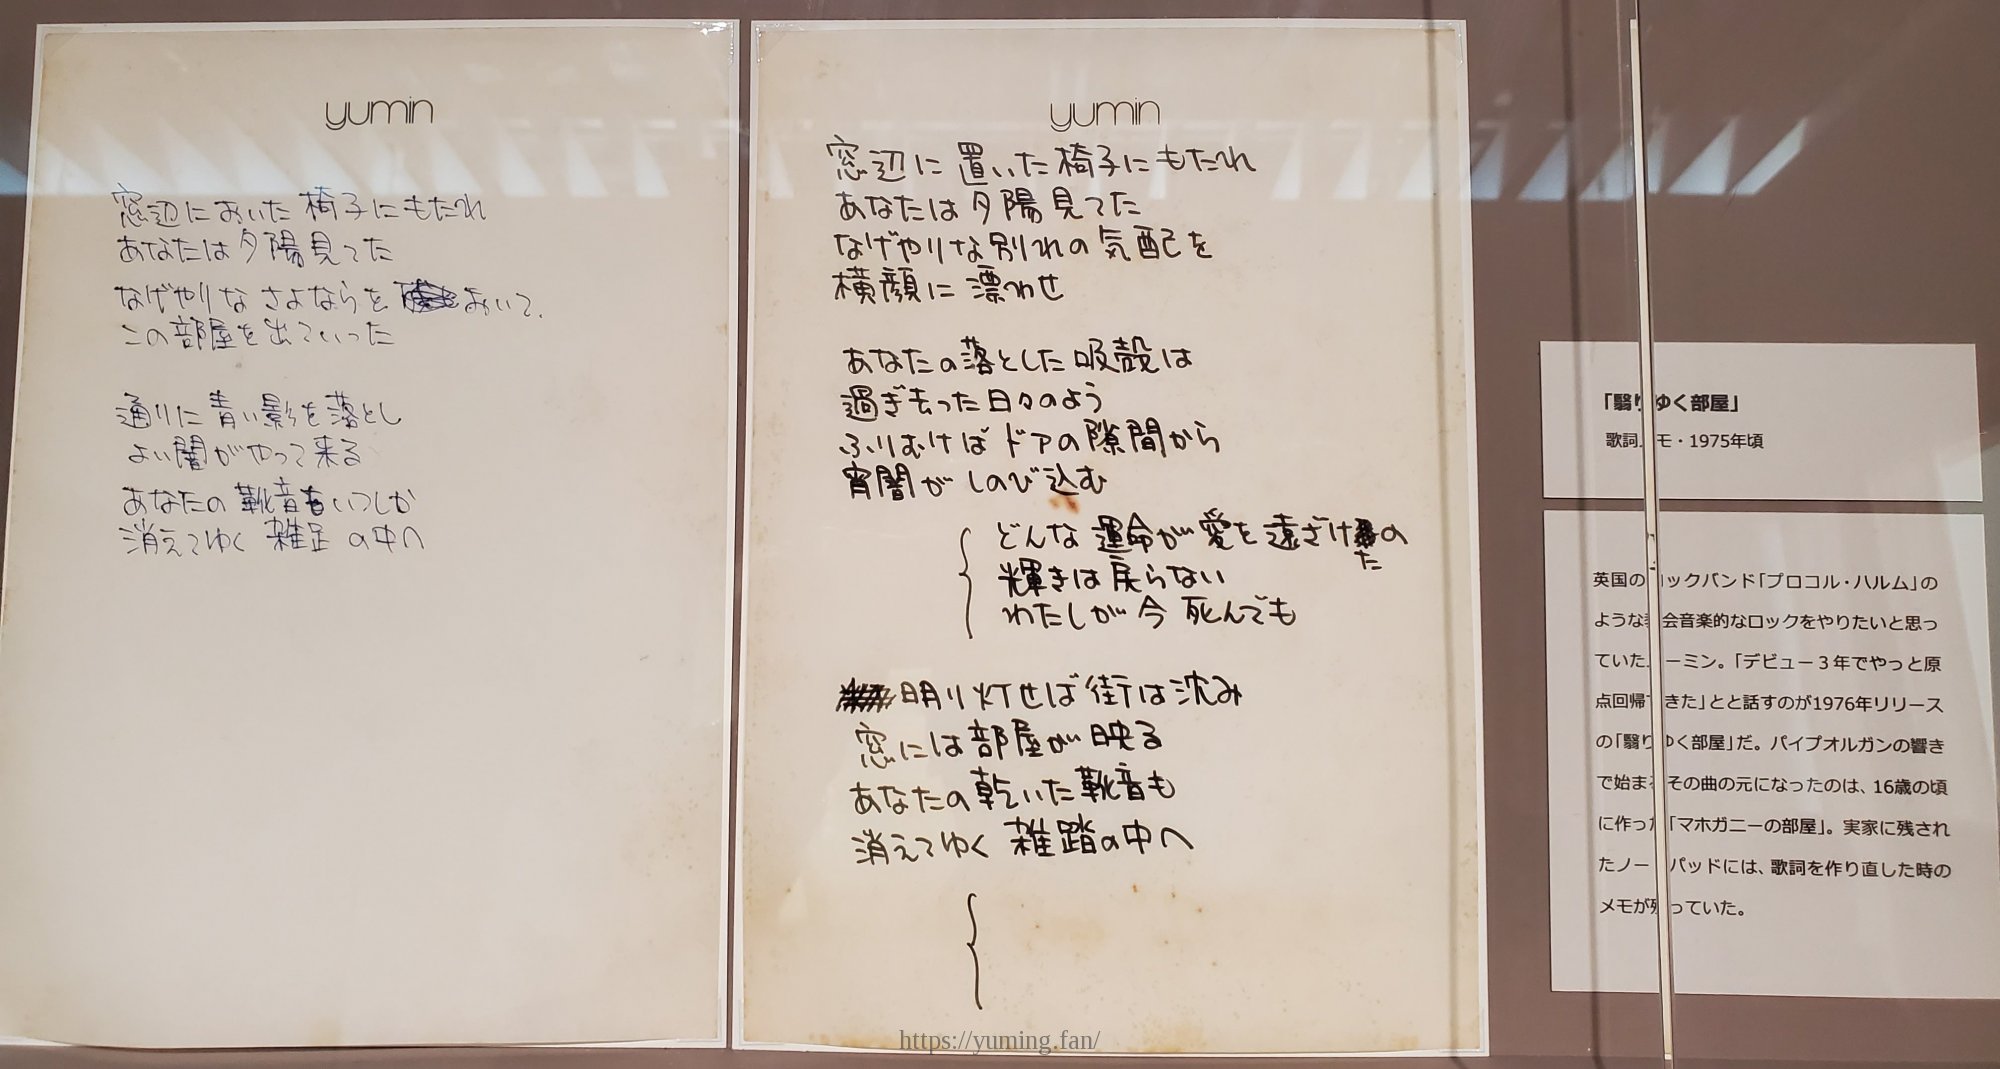 yumin
窓辺においた椅子にもたれ
あなたは夕陽見てた
なげやりなさよならを おいて、
この部屋を出ていった
通りに青い影を落とし
よい闇がやって来る
あなたの靴音もいつしか
消えてゆく雑踏の中へ
yumin
窓辺に置いた椅子にもたれ
あなたは夕陽見てた
なげやりな別れの気配を
横顔に漂わせ
あなたの落とした吸殻は
過ぎ去った日々のよう
ふりむけばドアの隙間から
宵闇がしのび込む
どんな運命が愛を遠ざけたの
輝きは戻らない
わたしが今死んでも
明り灯せば街は沈み
窓には部屋が映る
あなたの乾いた靴音も
消えてゆく雑踏の中へ
「翳りゆく部屋」
歌詞メモ・1975年頃
英国のロックバンド「プロコル・ハルム」の
ような教会音楽的なロックをやりたいと思っ
ていたユーミン。「デビュー3年でやっと原
点回帰できた」とと話すのが1976年リリース
の「翳りゆく部屋」だ。パイプオルガンの響き
で始まるその曲の元になったのは、16歳の頃
に作った「マホガニーの部屋」。実家に残され
たノートパッドには、歌詞を作り直した時の
メモが残っていた。
https://yuming.fan/